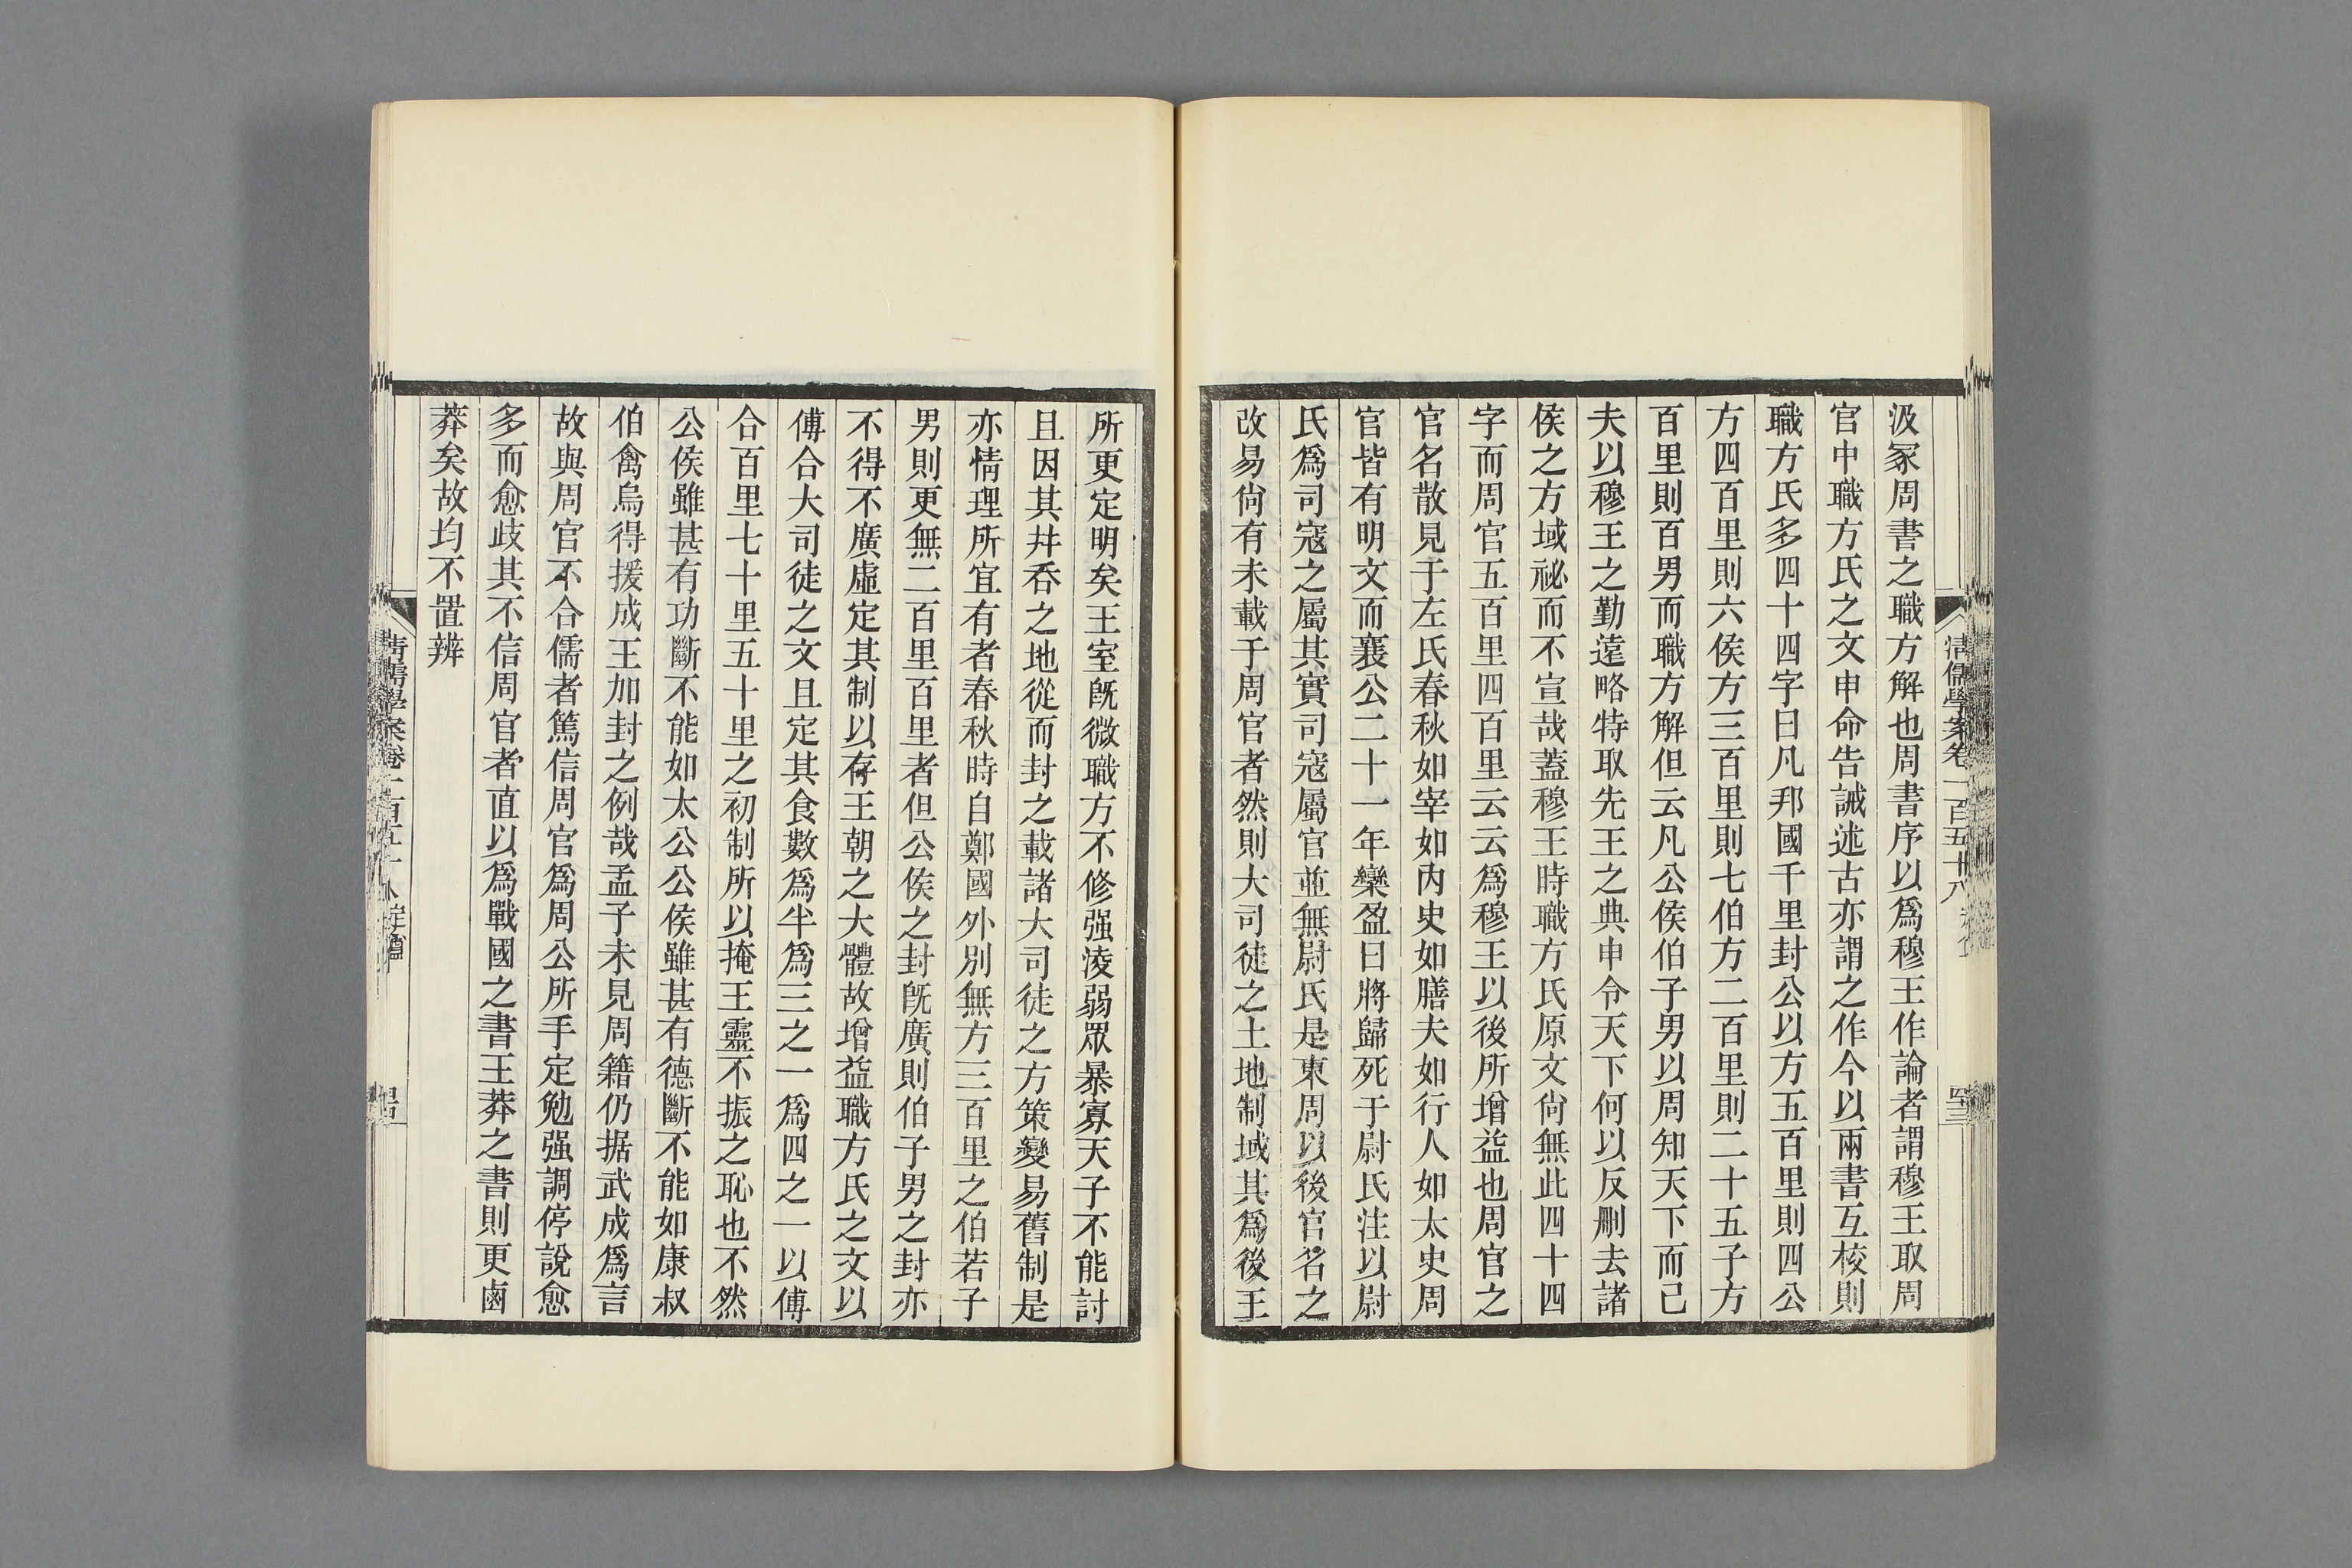 汲冢周書之職方解也周書序以爲穆王作論者謂穆王取周
官中職方氏之文申命告誡述古亦謂之作今以兩書互校則
職方氏多四十四字曰凡邦國千里封公以方五百里則四公
方四百里則六侯方三百里則七伯方二百里則二十五子方
百里則百男而職方解但云凡公侯伯子男以周知天下而已
夫以穆王之勤遠略特取先王之典申令天下何以反刪去諸
侯之方域祕而不宣哉蓋穆王時職方氏原文尙無此四十四
字而周官五百里四百里云云爲穆王以後所增益也周官之
官名散見于左氏春秋如宰如內史如膳夫如行人如太史周
官皆有明文而襄公二十一年欒盈曰將歸死于尉氏注以尉
氏爲司寇之屬其實司寇屬官並無尉氏是東周以後官名之
改易尙有未載于周官者然則大司徒之土地制域其爲後王
所更定明矣王室旣微職方不修强淩弱眾暴寡天子不能討
且因其幷吞之地從而封之載諸大司徒之方策變易舊制是
亦情理所宜有者春秋時自鄭國外別無方三百里之伯若子
男則更無二百里百里者但公侯之封旣廣則伯子男之封亦
不得不廣虛定其制以存王朝之大體故增益職方氏之文以
傅合大司徒之文且定其食數爲半爲三之一爲四之一以傅
合百里七十里五十里之初制所以掩王靈不振之恥也不然
公侯雖甚有功斷不能如太公公侯雖甚有德斷不能如康叔
伯禽烏得援成王加封之例哉孟子未見周籍仍据武成爲言
故與周官不合儒者篤信周官爲周公所手定勉强調停說愈
多而愈歧其不信周官者直以爲戰國之書王莽之書則更鹵
莽矣故均不置辨
清儒學案卷一百五十八